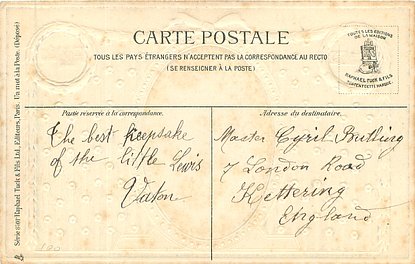 CARTE POSTALE
TOUS LES PAYS ÉTRANGERS N'ACCEPTENT PAS LA CORRESPONDANCE AU RECTO
(SE RENSEIGNER À LA POSTE)
TOUTES LES ÉDITIONS
DE LA MAISON
RAPHAEL TUCK & FILS
PORTENT CETTE MARQUE
Partie réservée à la correspondance.
The best keepsake
of the little Lewis
Vaton
Adresse du destinataire.
Master Cyril Butling
7 London Road
Kettering
England
Raphael Tuck & Fils Ltd., Editeurs, Paris. Un mot à la Poste. (Déposé)